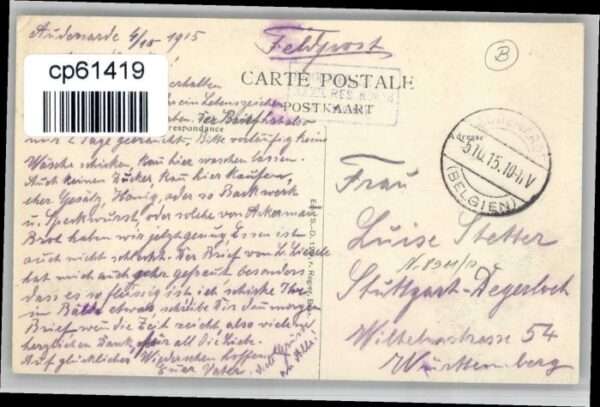 Audenarde 4/10 1915
Feldpost
B
cp61419
CARTE POSTALE
POSTKAART
erhalten
ein Lebenszeichen
respondance
Der Brief hat also
nur 2 Tage gebraucht, Bitte vorläufig keine
Wäsche schicken, kan hier waschen lassen.
Auch keinen Zucker, kan hier kaufen,
eher Gesälz, Honig, oder so Backwerk
u. Speckwurst, oder solche von Ackerman
Brot haben wir jetzt genug, Essen ist
auch nicht schlecht. Der Brief von
hat mich auch sehr gefreut besonders
dass es so fleissig ist ich schicke Ihr
in Bälde etwas schreibe Dir dan morgen
Brief wen die Zeit reicht, also viele
herzlichen Dank, für all die Liebe.
Auf glückliches Wiedersehen hoffen
Euer Vater.
Adresse
5.10.15.10-11V
(BELGIEN)
Frau
Luise Stetter
Stuttgart-Degerloch
Wilhelmstrasse 54
Württemberg